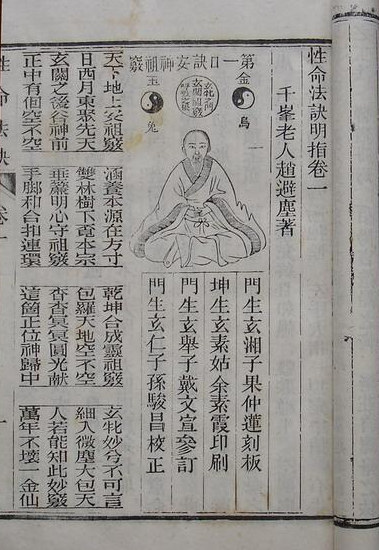 性命法訣明指卷一
千峯老人趙避塵著
第一口訣安神祖竅
金烏
玉兔
玄關祖竅
門生玄湘子果仲蓮刻板
坤生玄素姑余素霞印刷
門生玄舉子戴文宣參訂
門生玄仁子孫駿昌校正
天下地上安祖竅 涵養本源在方寸 乾坤合成靈祖竅 玄牝妙兮不可言
日西月東聚先天 雙林樹下覓本宗 包羅天地空不空 細入微塵大包天
玄關之後谷神前 垂簾明心守祖竅 杳杳冥冥圓光献 人若能知此妙竅
正中有個空不空 手腳和合扣連環 這箇正位神歸中 萬年不壞一金仙
性命法訣 卷一 一